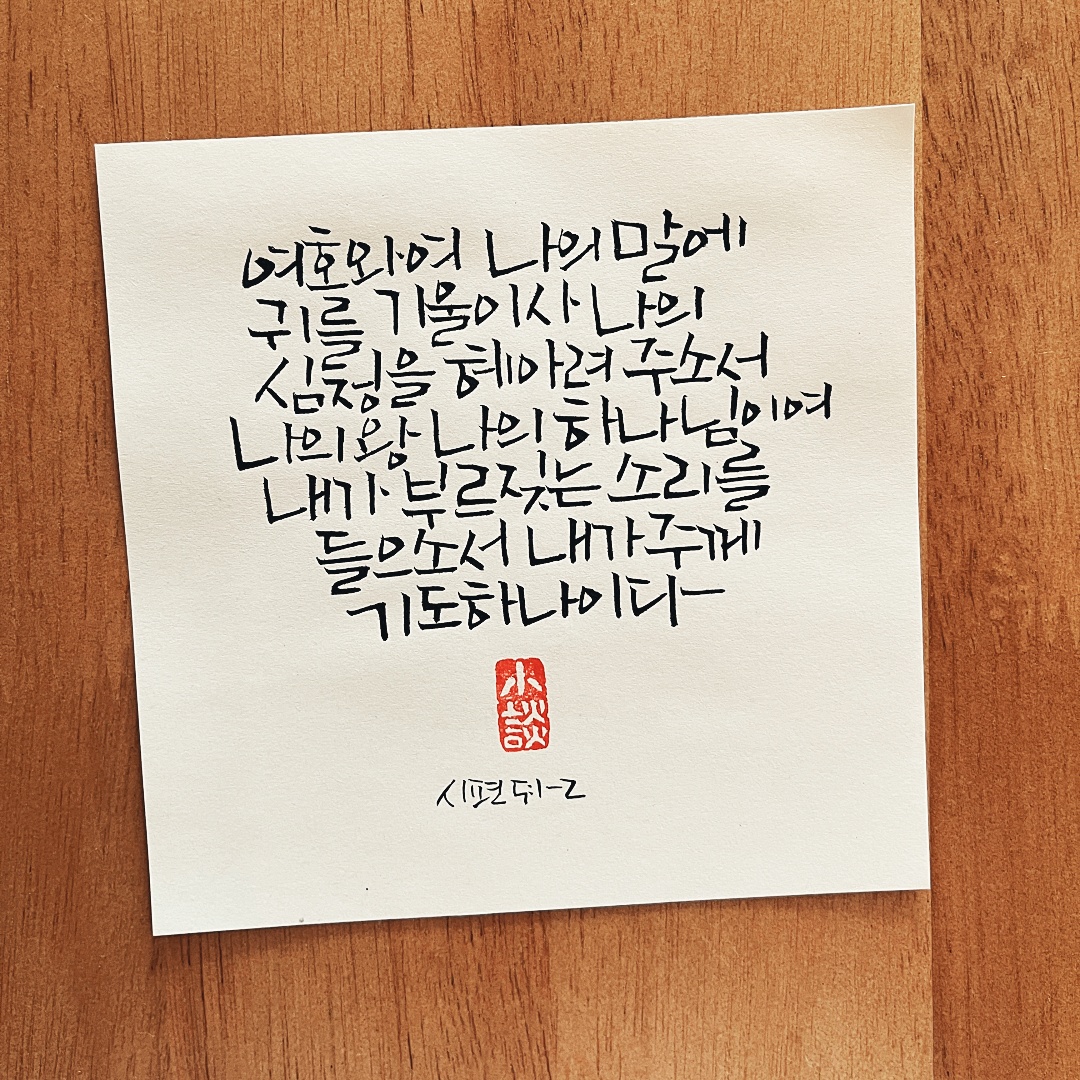 여호와여 나의 말에
귀를 기울이사 나의
심정을 헤아려 주소서
나의 왕 나의 하나님이여
내가 부르짖는 소리를
들으소서 내가 주께
기도하나이다
小談
시편 5:1-2